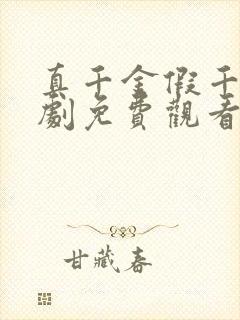 真千金假千
劇免費觀看
甘藏春